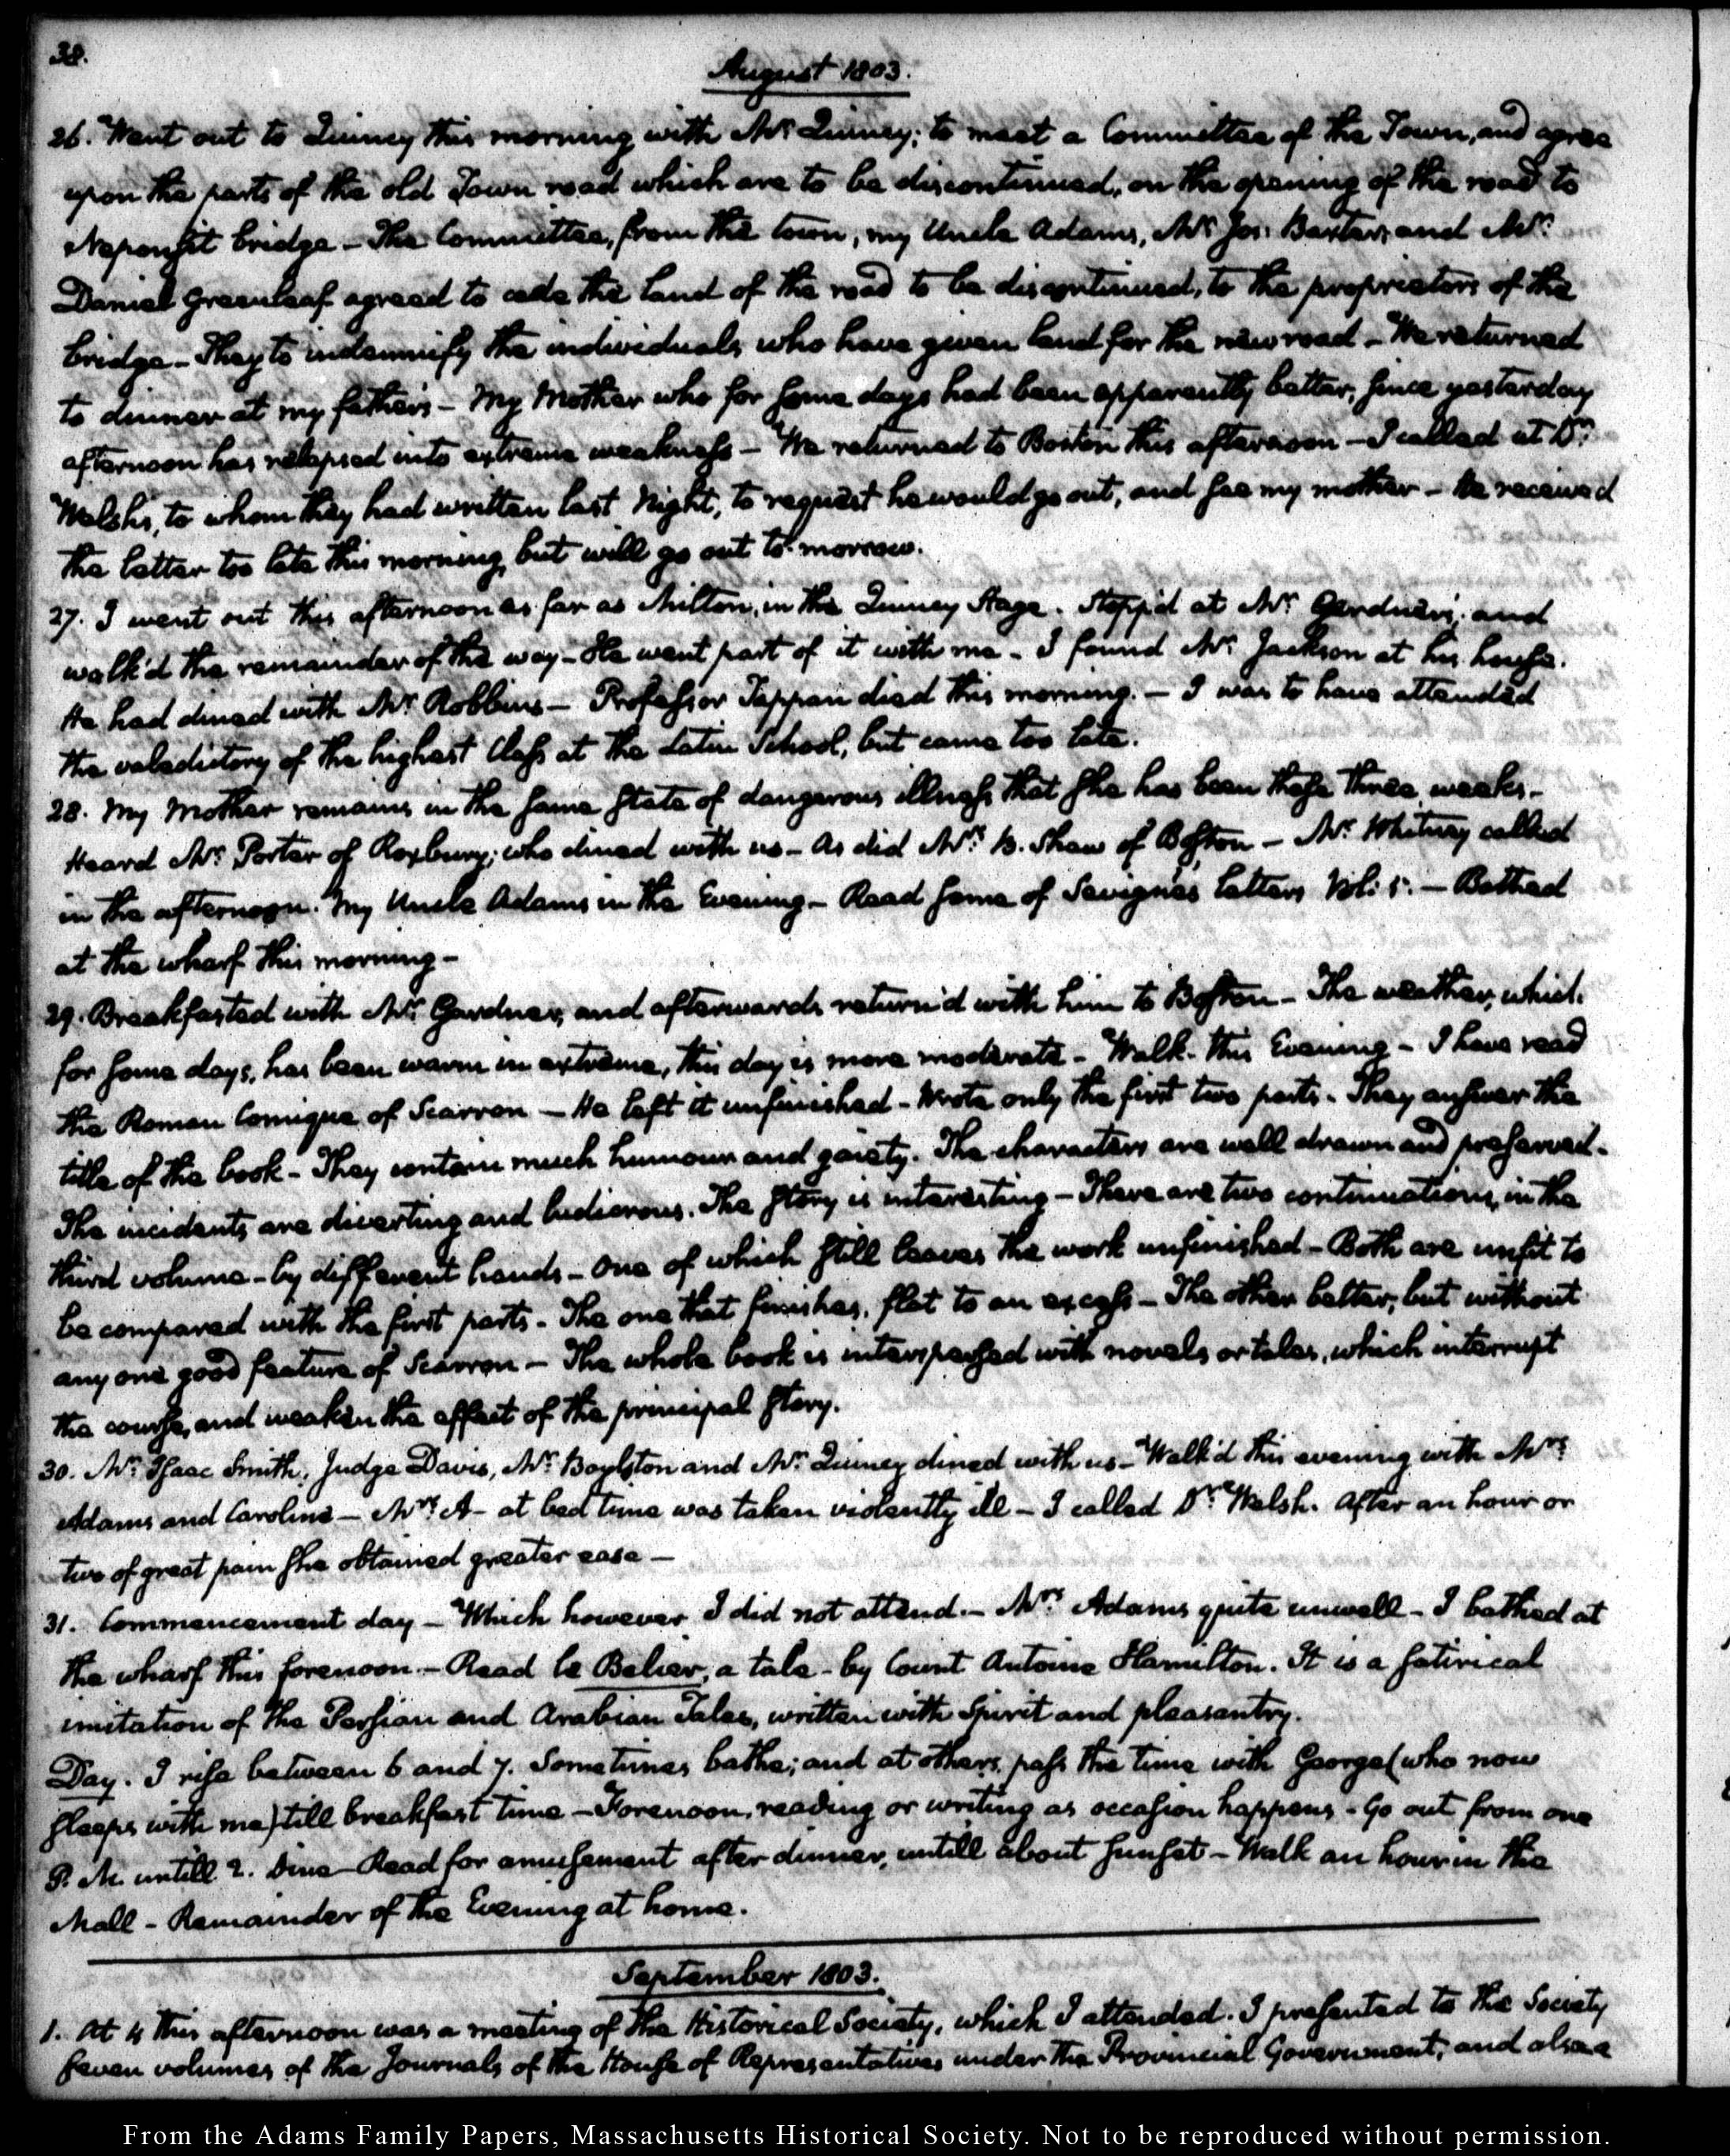 38.
August 1803.
26. Went out to Quincy this morning with Mr. Quincy; to meet a Committee of the Town, and agree
upon the parts of the old Town road which are to be discontinued, on the opening of the road to
Neponsit bridge — The Committee, from the town, my Uncle Adams, Mr. Jos: Baxter, and Mr.
Daniel Greenleaf agreed to cede the land of the road to be discontinued, to the proprietors of the
bridge — They to indemnify the individuals who have given land for the new road — We returned
to dinner at my father's — My Mother who for some days had been apparently better, since yesterday
afternoon has relapsed into extreme weakness — We returned to Boston this afternoon — I called at Dr.
Welsh's, to whom they had written last Night, to request he would go out, and see my mother — He received
the letter too late this morning, but will go out to-morrow.
27. I went out this afternoon as far as Milton, in the Quincy Stage. Stopp'd at Mr. Gardner's, and
walk'd the remainder of the way — He went part of it with me — I found Mr. Jackson at his house.
He had dined with Mr. Robbins — Professor Tappan died this morning. — I was to have attended
the valedictory of the highest Class at the Latin School, but came too late.
28. My Mother remains in the same state of dangerous illness that she has been these three weeks —
Heard Mr. Porter of Roxbury; who dined with us — As did Mr. B. Shaw of Boston — Mr. Whitney called
in the afternoon. My Uncle Adams in the Evening — Read some of Sevigné's letters Vol: 5. — Bathed
at the wharf this morning —
29. Breakfasted with Mr. Gardner, and afterwards return'd with him to Boston — The weather, which
for some days, has been warm in extreme, this day is more moderate — Walk this Evening — I have read
the Roman Comique of Scarron — He left it unfinished — Wrote only the first two parts. They answer the
title of the book — They contain much humour and gaiety. The characters are well drawn and preserved.
The incidents are diverting and ludicrous. The story is interesting — There are two continuations, in the
third volume — by different hands — One of which still leaves the work unfinished — Both are unfit to
be compared with the first parts — The one that finishes, flat to an excess — The other better, but without
any one good feature of Scarron — The whole book is interspersed with novels or tales, which interrupt
the course, and weaken the effect of the principal story.
30. Mr. Isaac Smith, Judge Davis, Mr. Boylston and Mr. Quincy dined with us — Walk'd this evening with Mrs.
Adams and Caroline — Mrs. A — at bed time was taken violently ill — I called Dr. Welsh. After an hour or
two of great pain she obtained greater ease —
31. Commencement day — Which however I did not attend. — Mrs. Adams quite unwell — I bathed at
the wharf this forenoon. — Read le Belier, a tale — by Count Antoine Hamilton. It is a satirical
imitation of the Persian and Arabian Tales, written with Spirit and pleasantry.
Day. I rise between 6 and 7. Sometimes bathe; and at others, pass the time with George (who now
sleeps with me) till breakfast time — Forenoon, reading or writing as occasion happens — Go out from one
P. M. untill 2. Dine — Read for amusement after dinner, untill about sunset — Walk an hour in the
Mall — Remainder of the Evening at home.
September 1803.
1. At 4 this afternoon was a meeting of the Historical Society, which I attended. I presented to the Society
seven volumes of the Journals of the House of Representatives under the Provincial Government; and also a
From the Adams Family Papers, Massachusetts Historical Society. Not to be reproduced without permission.